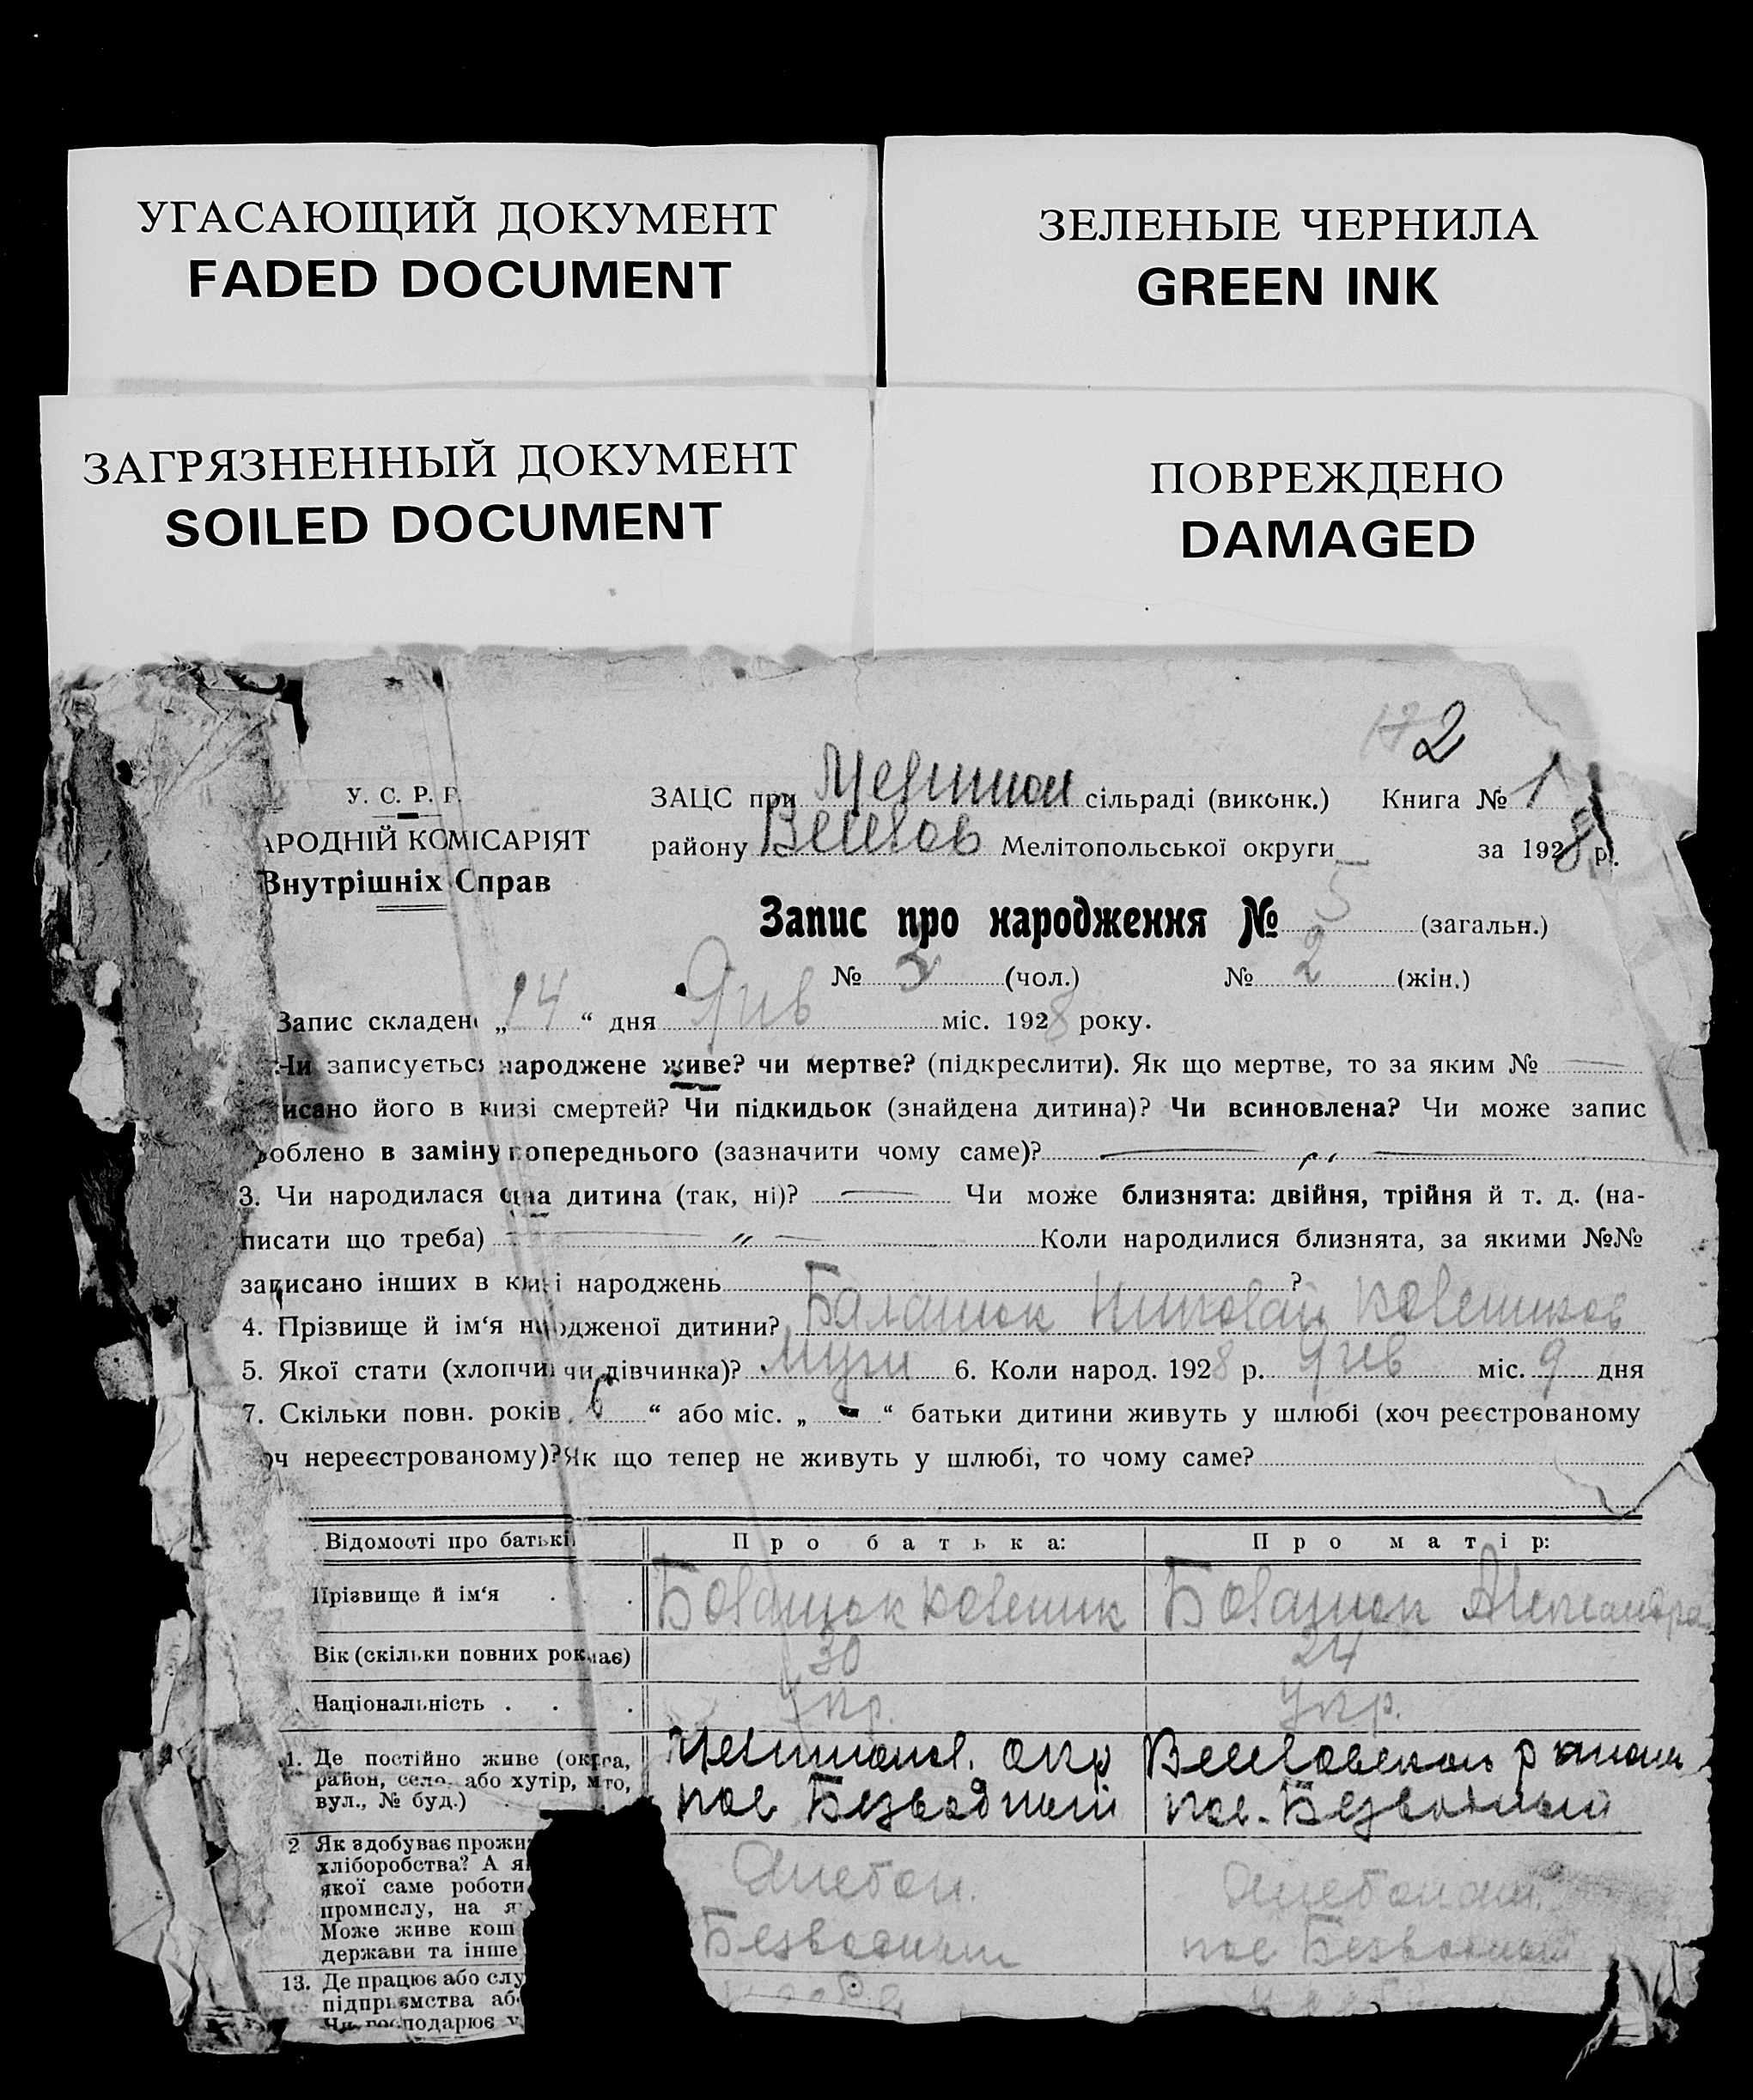 УГАСАЮЩИЙ ДОКУМЕНТ
FADED DOCUMENT
ЗЕЛЕНЫЕ ЧЕРНИЛА
GREEN INK
ЗАГРЯЗНЕННЫЙ ДОКУМЕНТ
SOILED DOCUMENT
ПОВРЕЖДЕНО
DAMAGED
2
У. С. Р. Р.
АРОДНІЙ КОМІСАРІЯТ
Внутрішніх Справ
ЗАЦС при сільраді (виконк.) Книга № 1
району Мелітопольської округи за 1928 р.
Запис про народження № 5 (загальн.)
№ 3 (чол.) № 2 (жін.)
Запис складено „14“ дня Янв міс. 1928 року.
Чи записується народжене живе? чи мертве? (підкреслити). Як що мертве, то за яким №
исано його в книзі смертей? Чи підкидьок (знайдена дитина)? Чи всиновлена? Чи може запис
роблено в заміну попереднього (зазначити чому саме)?
3. Чи народилася одна дитина (так, ні)? Чи може близнята: двійня, трійня й т. д. (на-
писати що треба) Коли народилися близнята, за якими №№
записано інших в книзі народжень ?
4. Прізвище й ім‘я народженої дитини? Николай
5. Якої стати (хлопчик чи дівчинка)? муж 6. Коли народ. 1928 р. Янв міс. 9 дня
7. Скільки повн. років 6 “ або міс. „ - “ батьки дитини живуть у шлюбі (хоч реєстрованому
оч нереєстрованому)? Як що тепер не живуть у шлюбі, то чому саме?
Відомості про батьків Про батька: Про матір:
Прізвище й ім‘я Александра
Вік (скільки повних рок. має) 30 24
Національність . . . Укр. Укр.
1. Де постійно живе (округа,
район, село, або хутір, місто,
вул., № буд.)
Мелитопол. окр
пос Безводный
района
пос. Безводный
2 Як здобуває прожи
хліборобства? А я
якої саме роботи
промислу, на я
Може живе кош
держави та інше
Безводный
пос Безводный
13. Де працює або слу
підприємства або
Чи господарює у